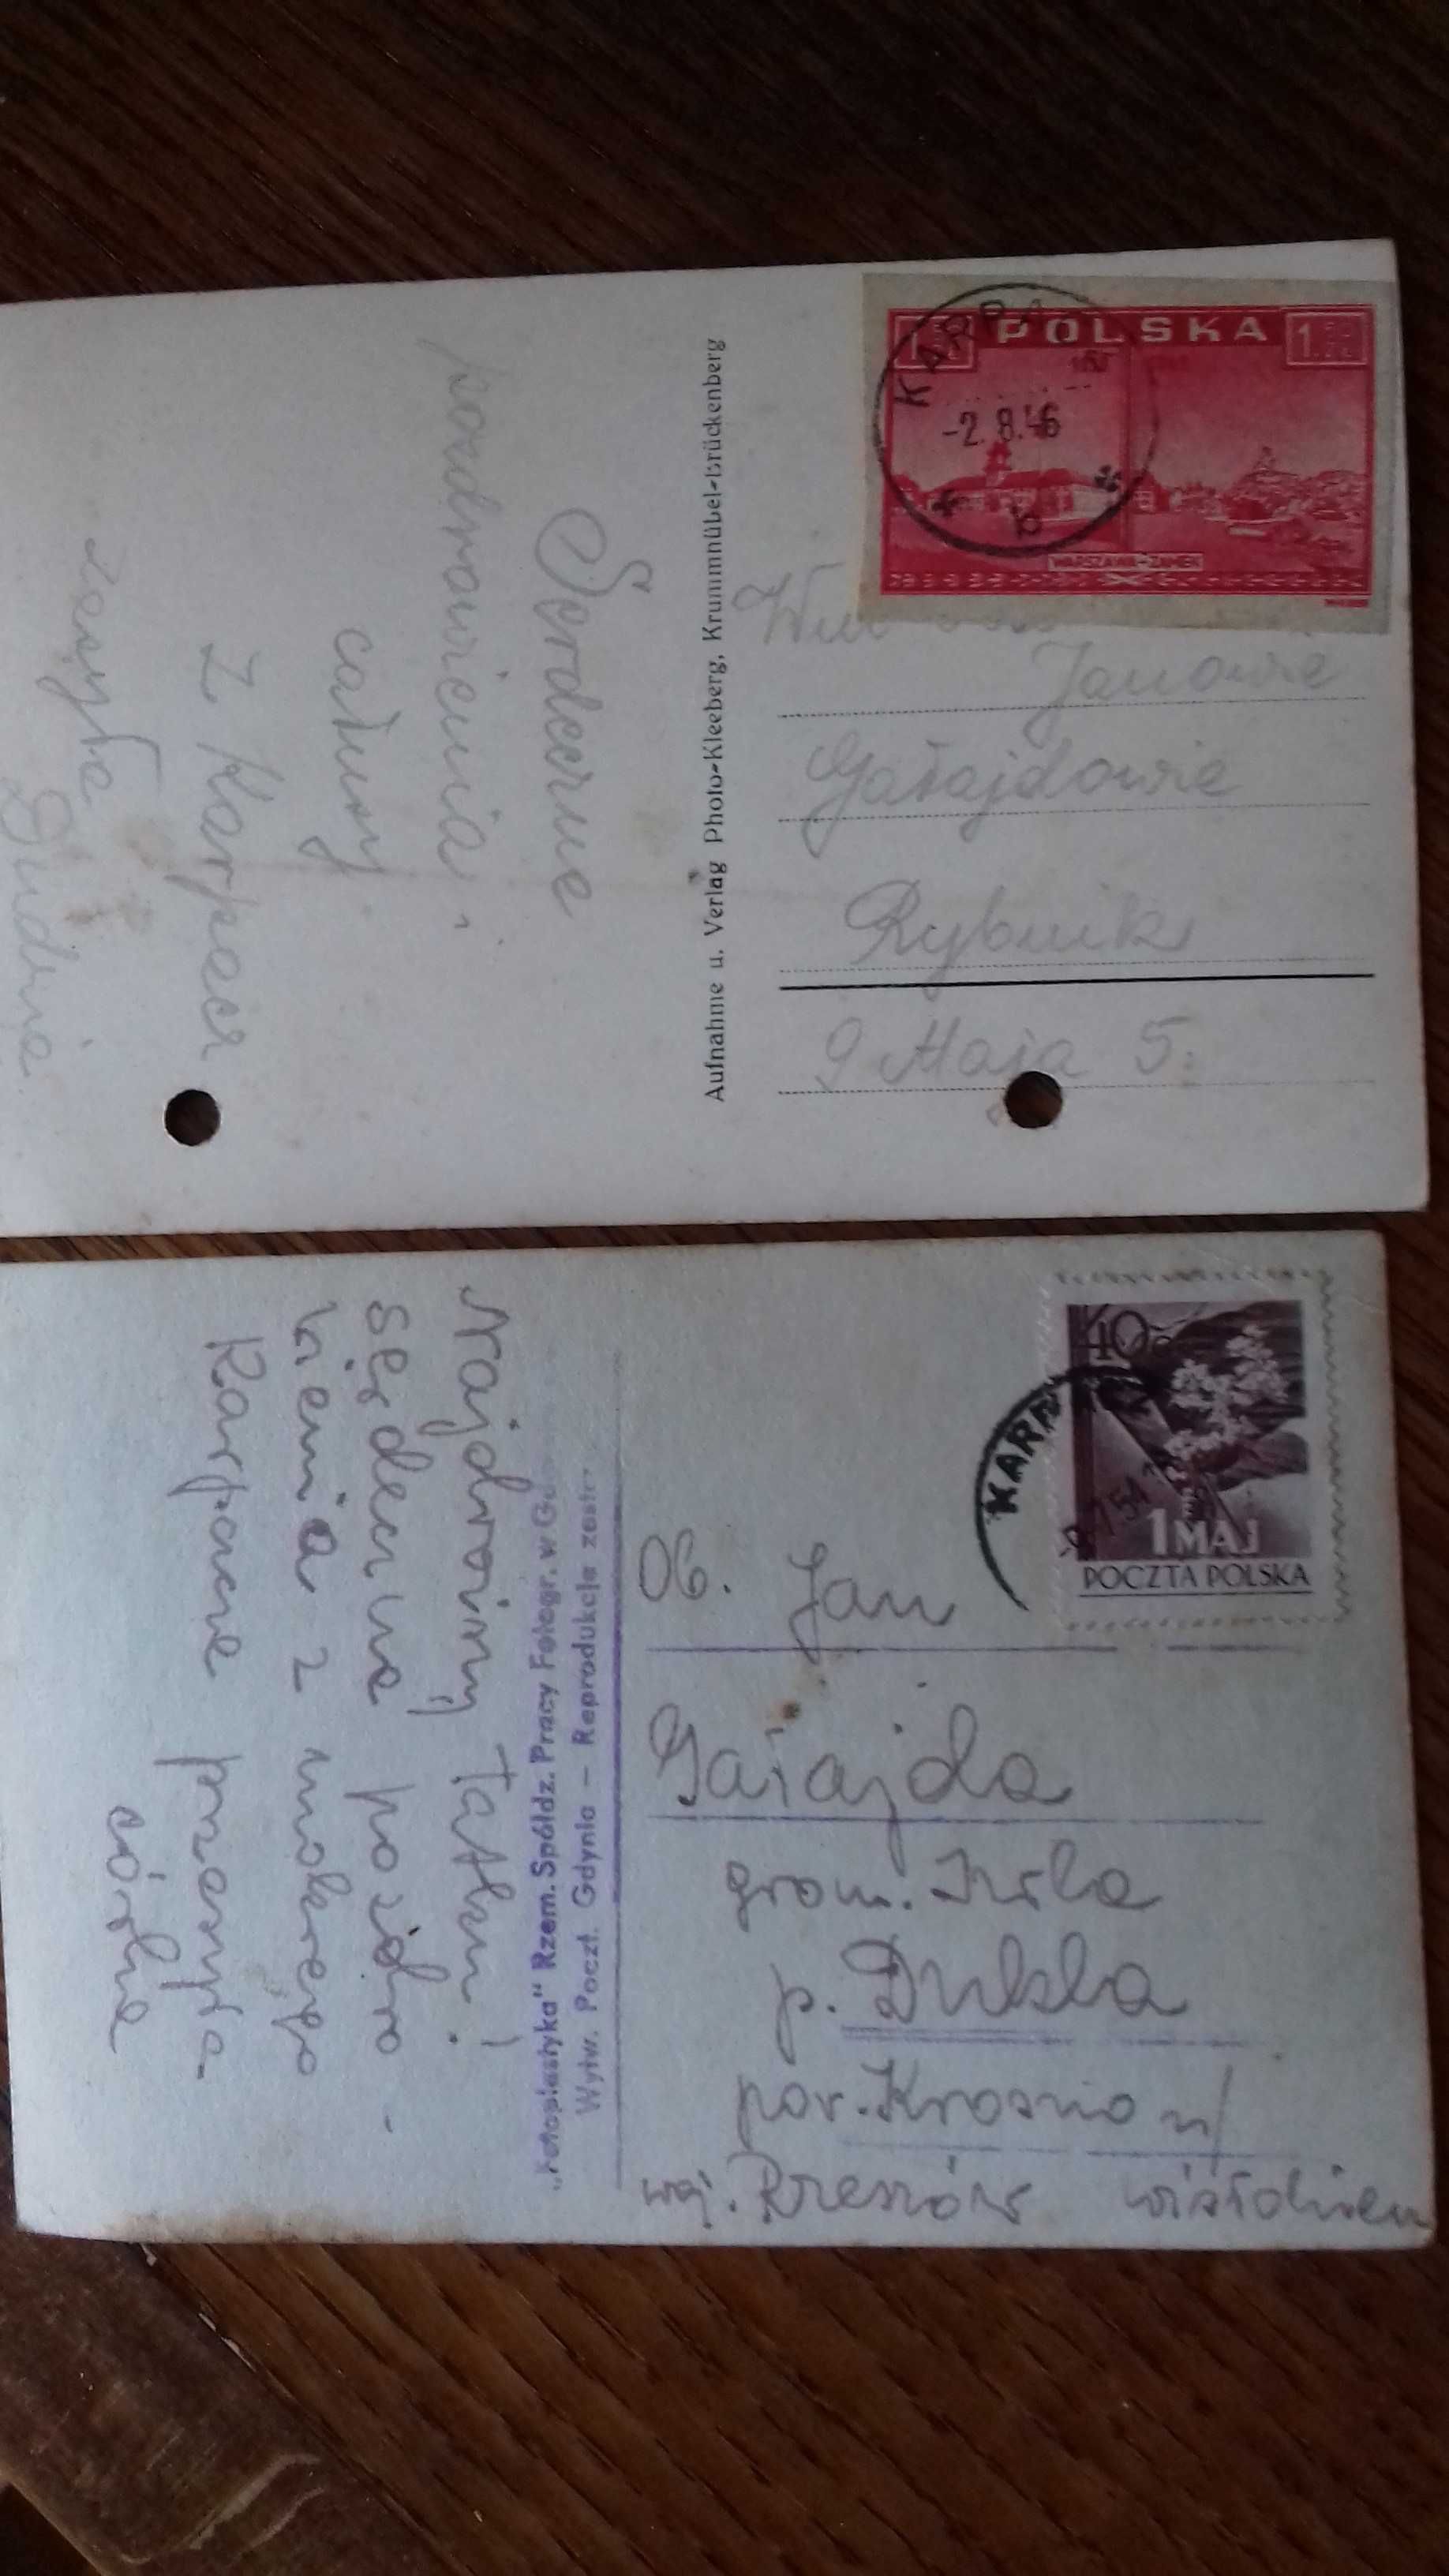 Serdeczne
pozdrowienia i
całusy
z Karpacz
zasyła
Aufnahme u. Verlag Photo-Kleeberg, Krummhübel-Brückenberg
POLSKA
WARSZAWA-ZAMEK
KARP
-2.8.46
Janowie
Gałajdowie
Rybnik
9 Maja 5.
Najdrożsy Tatku!
Serdeczne pozdro-
wienia z mokrego
Karpacza przesyła
córka
„Fotoplastyka" Rzem. Spółdz. Pracy Fotogr. w
Wytw. Poczt. Gdynia – Reprodukcja zastr
40
KARP
1 MAJ
POCZTA POLSKA
Ob. Jan
Gałajda
grom. Iwla
p. Dukla
pow. Krosno n/
woj. Rzeszów wisłokiem